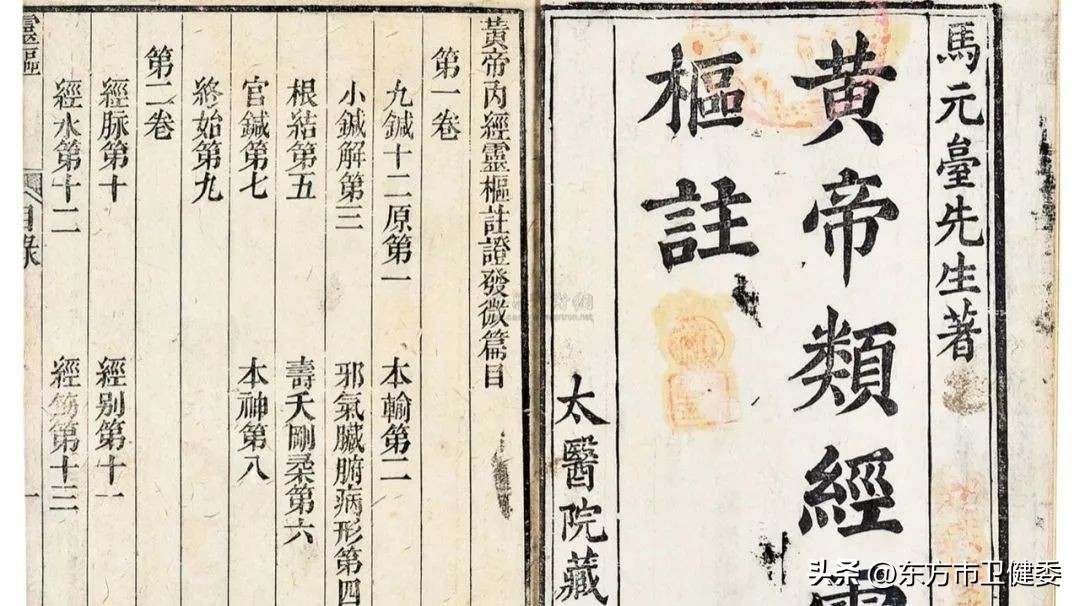 馬元臺先生著
黃帝類經靈
樞註
太醫院藏
黃帝內經靈樞註證發微篇目
第一卷
九鍼十二原第一
本輸第二
小鍼解第三
邪氣臟腑病形第四
根結第五
壽夭剛柔第六
官鍼第七
本神第八
終始第九
第二卷
經脉第十
經别第十一
經水第十二
經筋第十三
靈樞
目錄
一
头条 @东方市卫健委